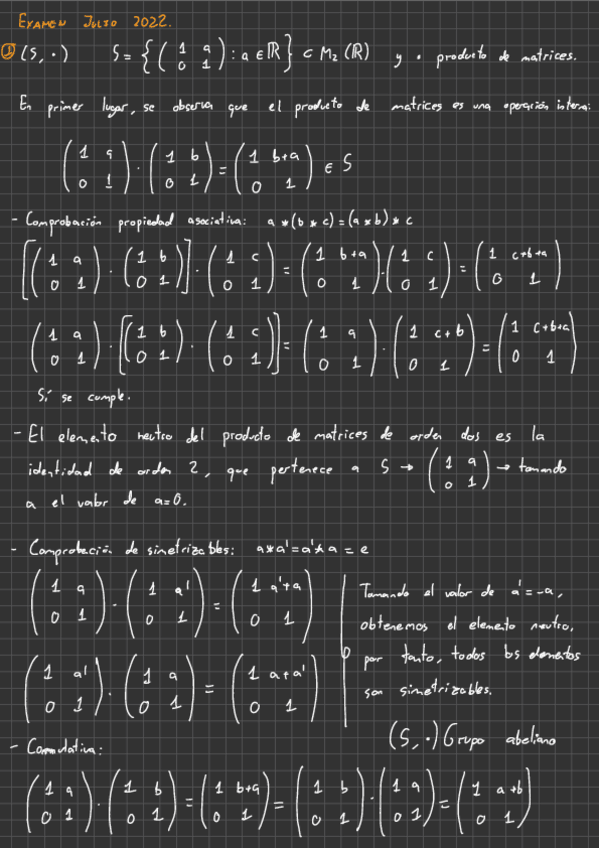 EXAMEN JULIO 2022.
① (S, ·) S = { ( 1 a ; 0 1 ) : a ∈ ℝ } ⊂ M₂(ℝ) y · producto de matrices.
En primer lugar, se observa que el producto de matrices es una operación interna:
( 1 a ; 0 1 ) · ( 1 b ; 0 1 ) = ( 1 b+a ; 0 1 ) ∈ S
- Comprobación propiedad asociativa: a*(b*c)=(a*b)*c
[ ( 1 a ; 0 1 ) · ( 1 b ; 0 1 ) ] · ( 1 c ; 0 1 ) = ( 1 b+a ; 0 1 ) · ( 1 c ; 0 1 ) = ( 1 c+b+a ; 0 1 )
( 1 a ; 0 1 ) · [ ( 1 b ; 0 1 ) · ( 1 c ; 0 1 ) ] = ( 1 a ; 0 1 ) · ( 1 c+b ; 0 1 ) = ( 1 c+b+a ; 0 1 )
Sí se cumple.
- El elemento neutro del producto de matrices de orden dos es la
identidad de orden 2, que pertenece a S → ( 1 a ; 0 1 ) → tomando
a el valor de a=0.
- Comprobación de simetrizables: a*a'=a'*a = e
( 1 a ; 0 1 ) · ( 1 a' ; 0 1 ) = ( 1 a'+a ; 0 1 )
( 1 a' ; 0 1 ) · ( 1 a ; 0 1 ) = ( 1 a+a' ; 0 1 )
Tomando el valor de a'=-a,
obtenemos el elemento neutro,
por tanto, todos los elementos
son simetrizables.
(S, ·) Grupo abeliano
- Conmutativa:
( 1 a ; 0 1 ) · ( 1 b ; 0 1 ) = ( 1 b+a ; 0 1 ) = ( 1 b ; 0 1 ) · ( 1 a ; 0 1 ) = ( 1 a+b ; 0 1 )